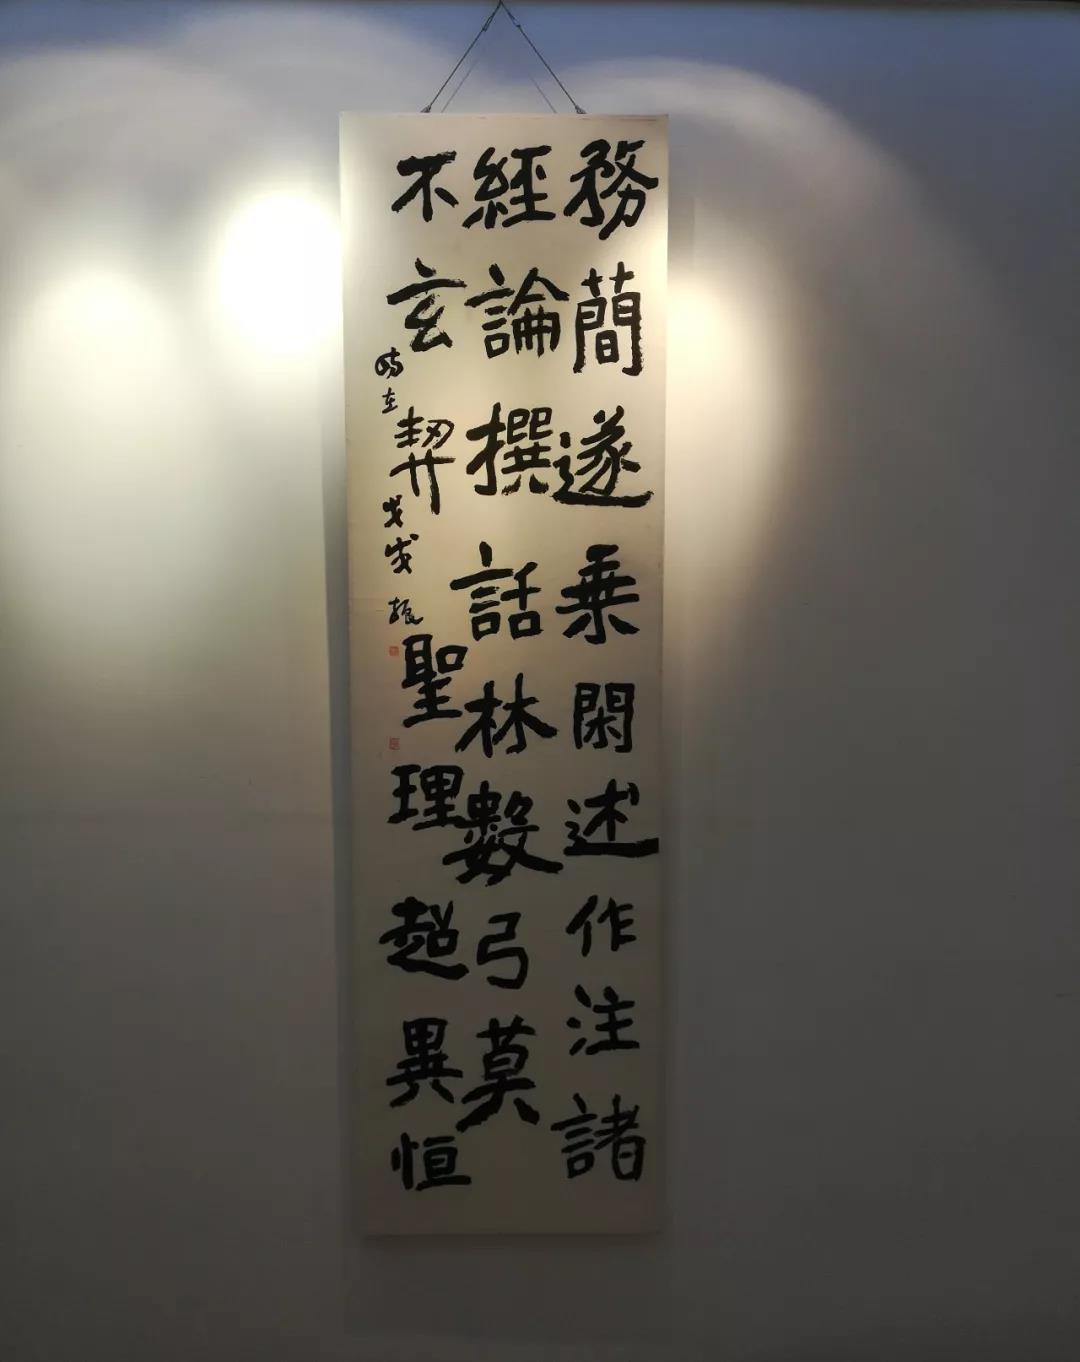 務簡遂乗閑述作注諸
經論撰話林數弓莫
不玄契聖理超異恒
時在戊戌振